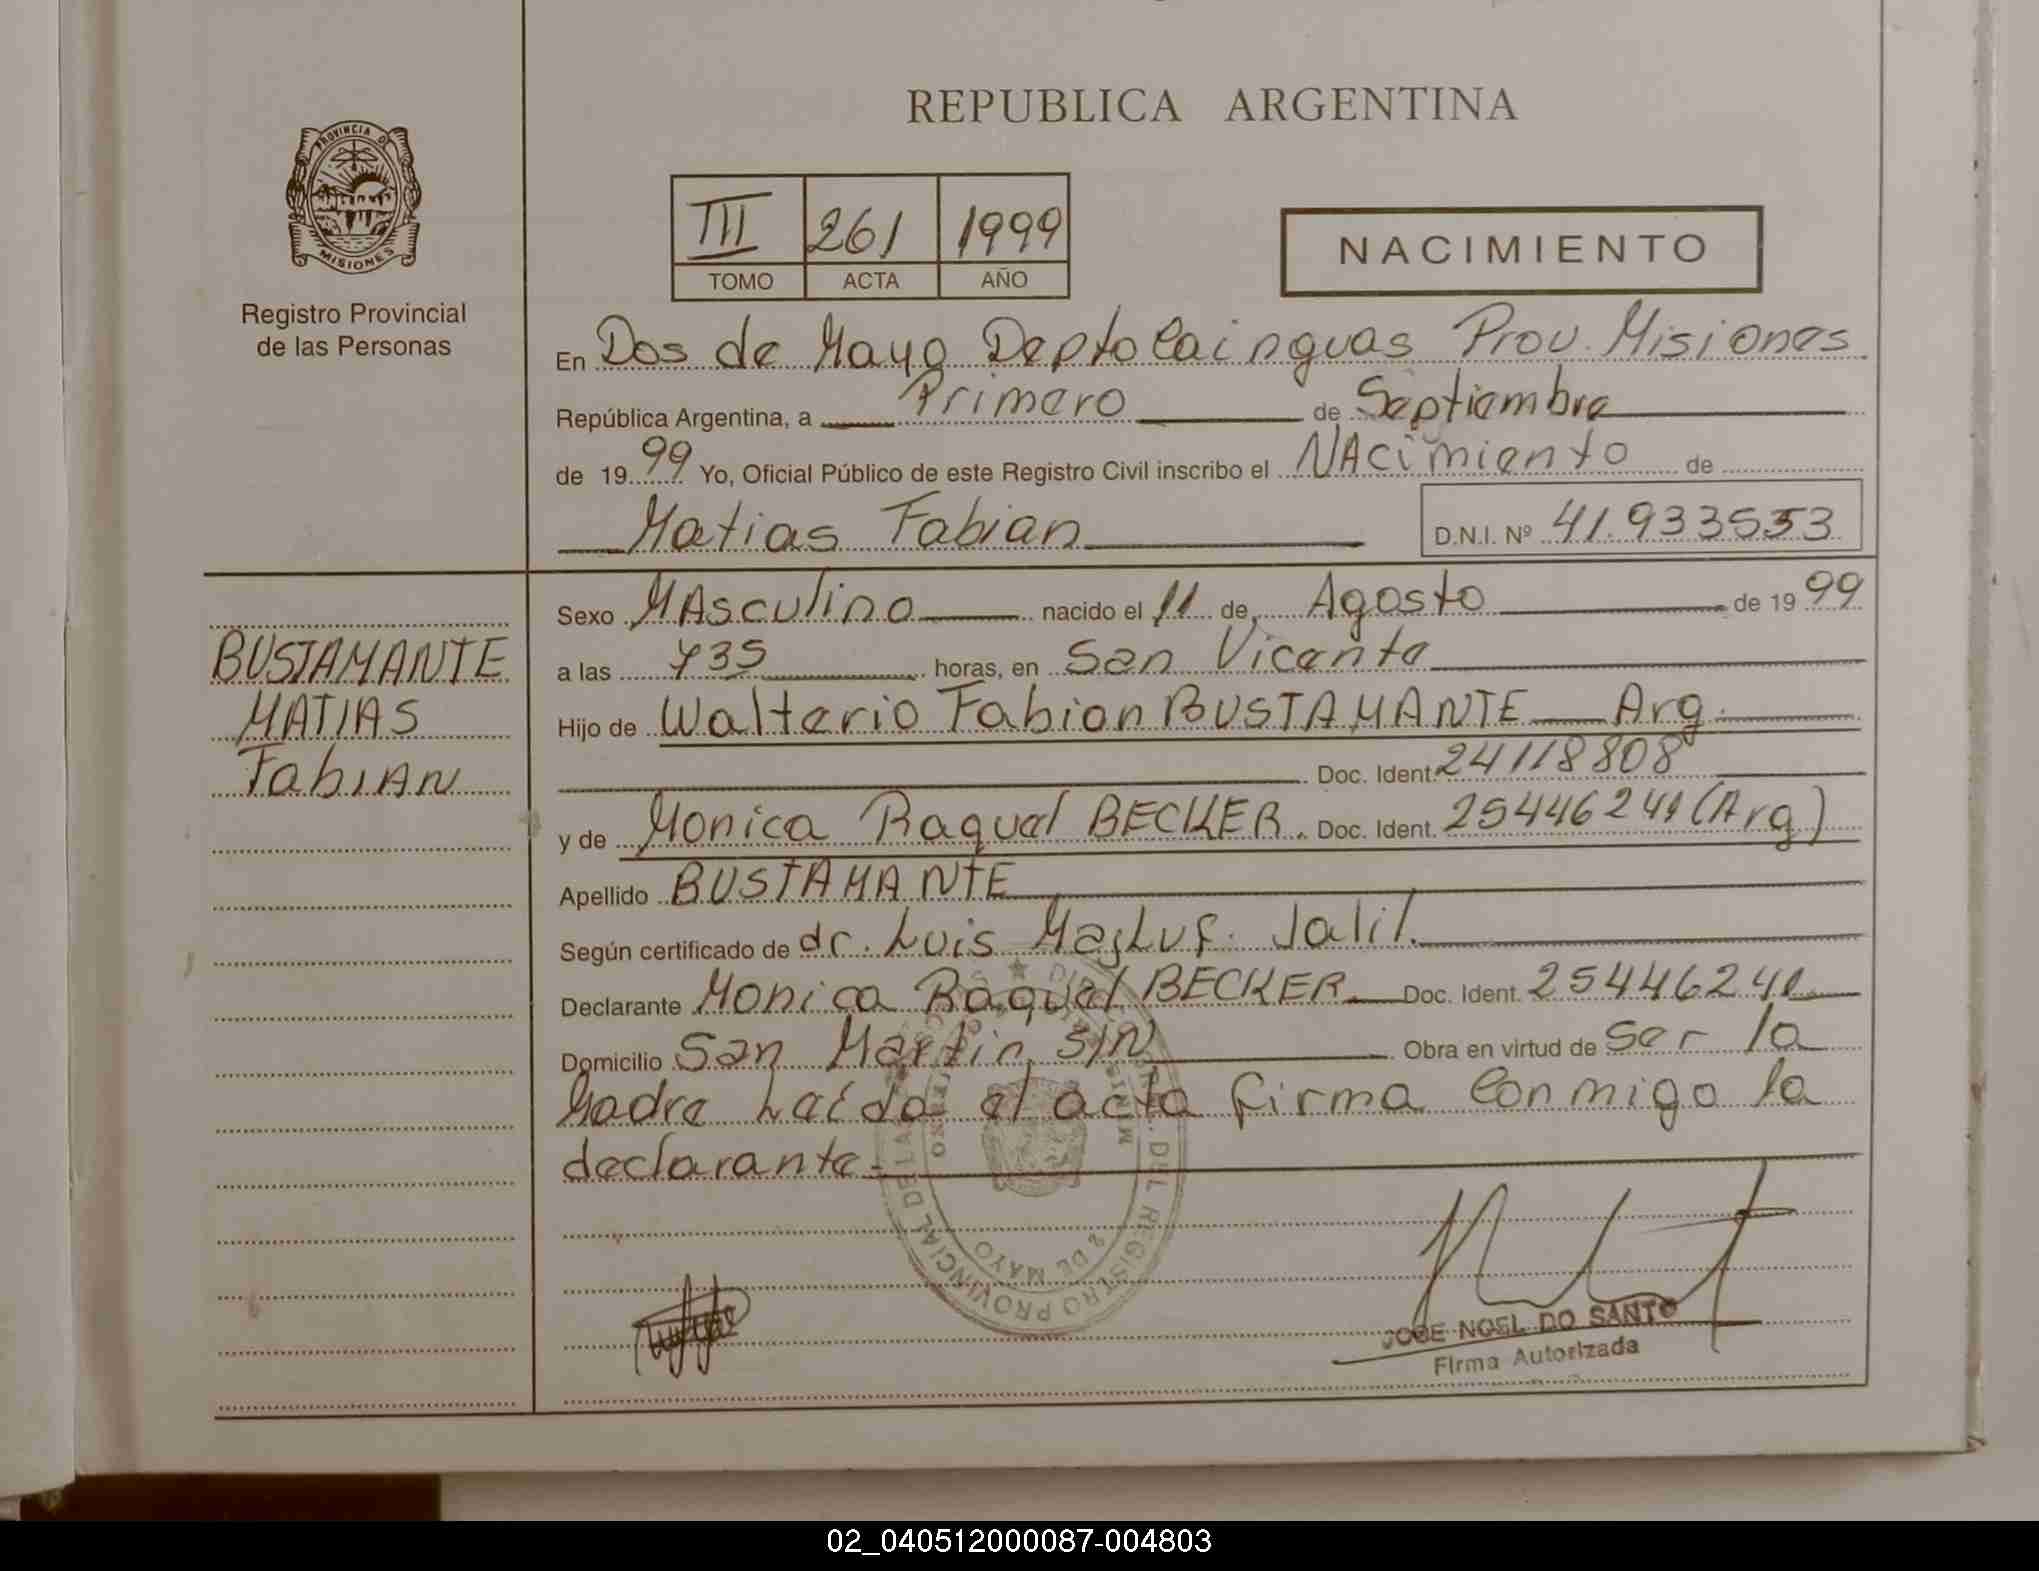 REPUBLICA ARGENTINA
PROVINCIA DE
MISIONES
Registro Provincial
de las Personas
III 261 1999
TOMO ACTA AÑO
NACIMIENTO
En Dos de Mayo Depto Cainguas Prov. Misiones
República Argentina, a Primero de Septiembre
de 1999 Yo, Oficial Público de este Registro Civil inscribo el NAcimiento de
Matias Fabian D.N.I. Nº 41.933553
BUSTAMANTE
MATIAS
FabIAN
Sexo MAsculino nacido el 11 de Agosto de 1999
a las 735 horas, en San Vicente
Hijo de Walterio Fabian BUSTAMANTE Arg.
Doc. Ident. 24118808
y de Monica Raquel BECKER. Doc. Ident. 25446241 (Arg)
Apellido BUSTAMANTE
Según certificado de dr. Luis MajLuf. Jalil.
Declarante Monica Raquel BECKER Doc. Ident. 25446241
Domicilio San Martin S/N Obra en virtud de Ser la
Madre Leída el acta firma Conmigo la
declarante.-
DEL REGISTRO PROVINCIAL DE LA
2 DE MAYO
JOSE NOEL DO SANTO
Firma Autorizada
02_040512000087-004803